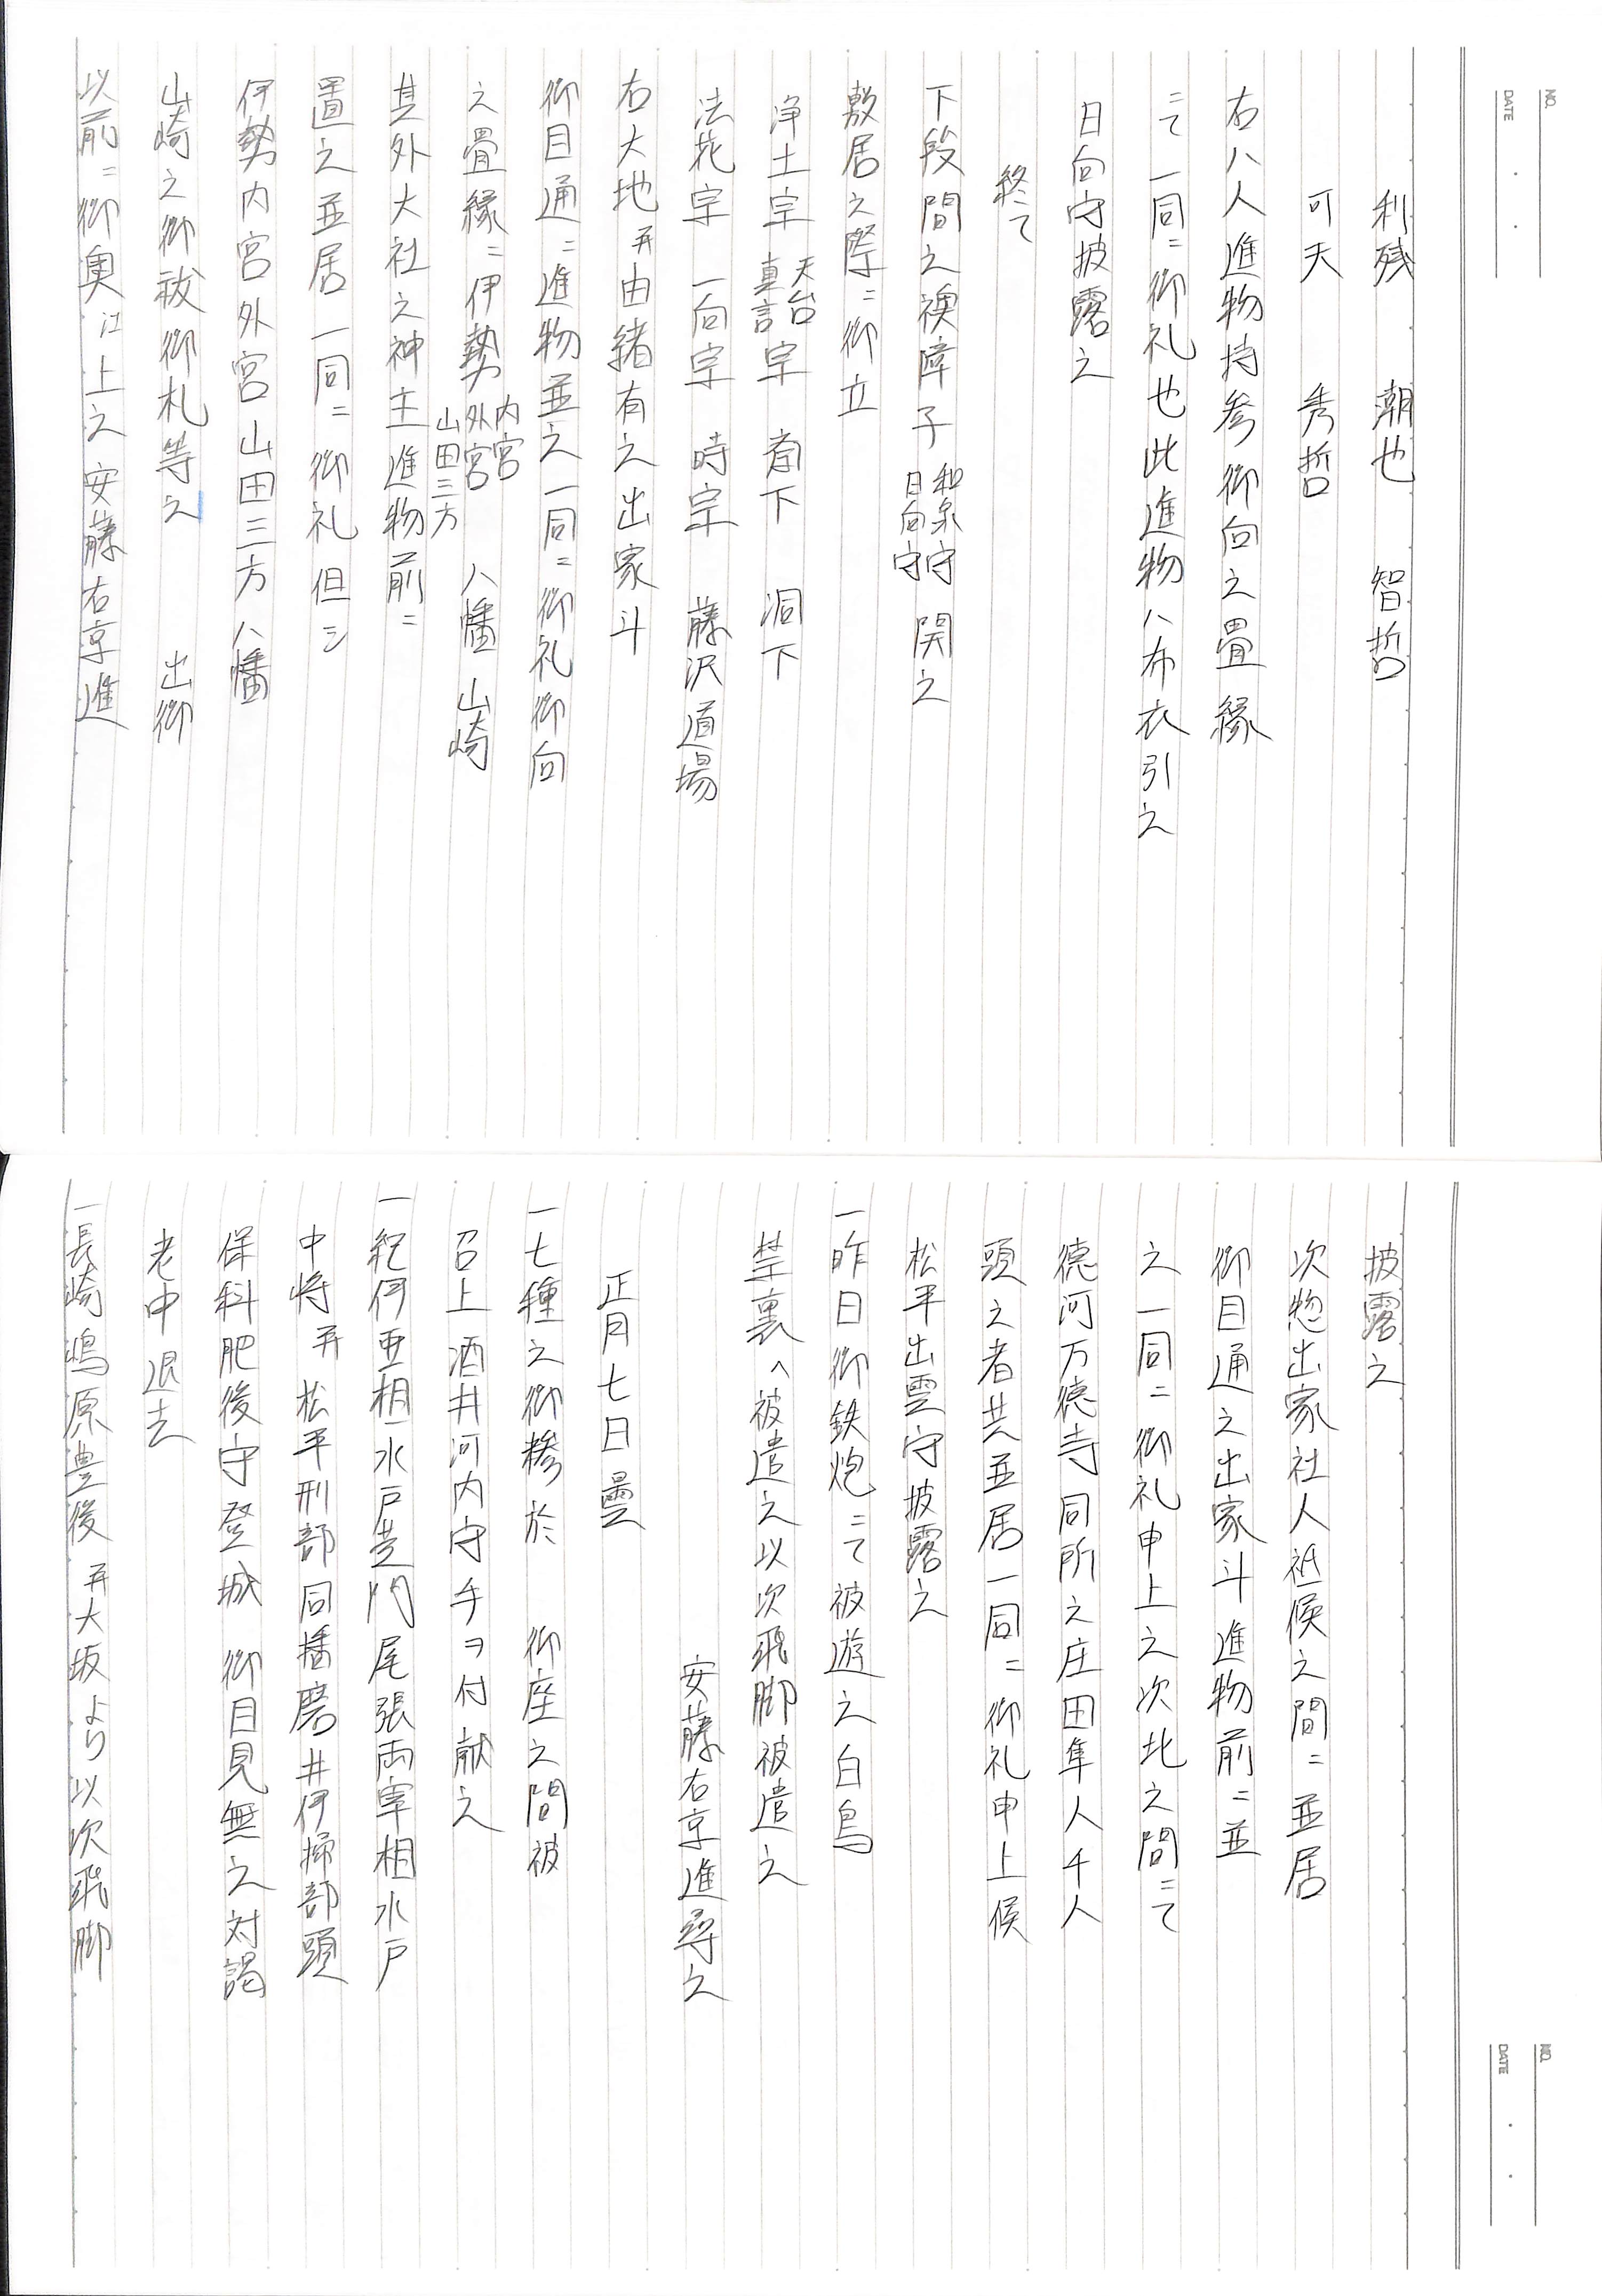 NO.
DATE
利残 潮也 智哲
可天 秀哲
右八人進物持参御向之畳縁
ニて一同ニ御礼也此進物ハ布衣引之
日向守披露之
終て
下段間之襖障子 和泉守 日向守 開之
敷居之際ニ御立
浄土宗 天台 真言 宗 斎下 洞下
法花宗 一向宗 時宗 藤沢道場
右大地并由緒有之出家斗
御目通ニ進物並之一同ニ御礼御向
之畳縁ニ伊勢 内宮 外宮 山田三方 八幡 山崎
其外大社之神主進物前ニ
置之並居一同ニ御礼但シ
伊勢内宮外宮山田三方八幡
山崎之御祓御札等之 出御
以前ニ御奥江上之安藤右京進
NO.
DATE
披露之
次惣出家社人祗候之間ニ並居
御目通之出家斗進物前ニ並
之一同ニ御礼申上之次北之間ニて
徳河万徳寺同所之庄田隼人千人
頭之者共並居一同ニ御礼申上候
松平出雲守披露之
一昨日御鉄炮ニて被遊之白鳥
禁裏へ被遣之以次飛脚被遣之
安藤右京進尋之
正月七日曇
一七種之御糝於 御座之間被
召上酒井河内守手ヲ付献之
一紀伊亜相水戸黄門尾張両宰相水戸
中将并松平刑部同播磨井伊掃部頭
保科肥後守登城 御目見無之対謁
老中退去
一長崎嶋原豊後并大坂より以次飛脚